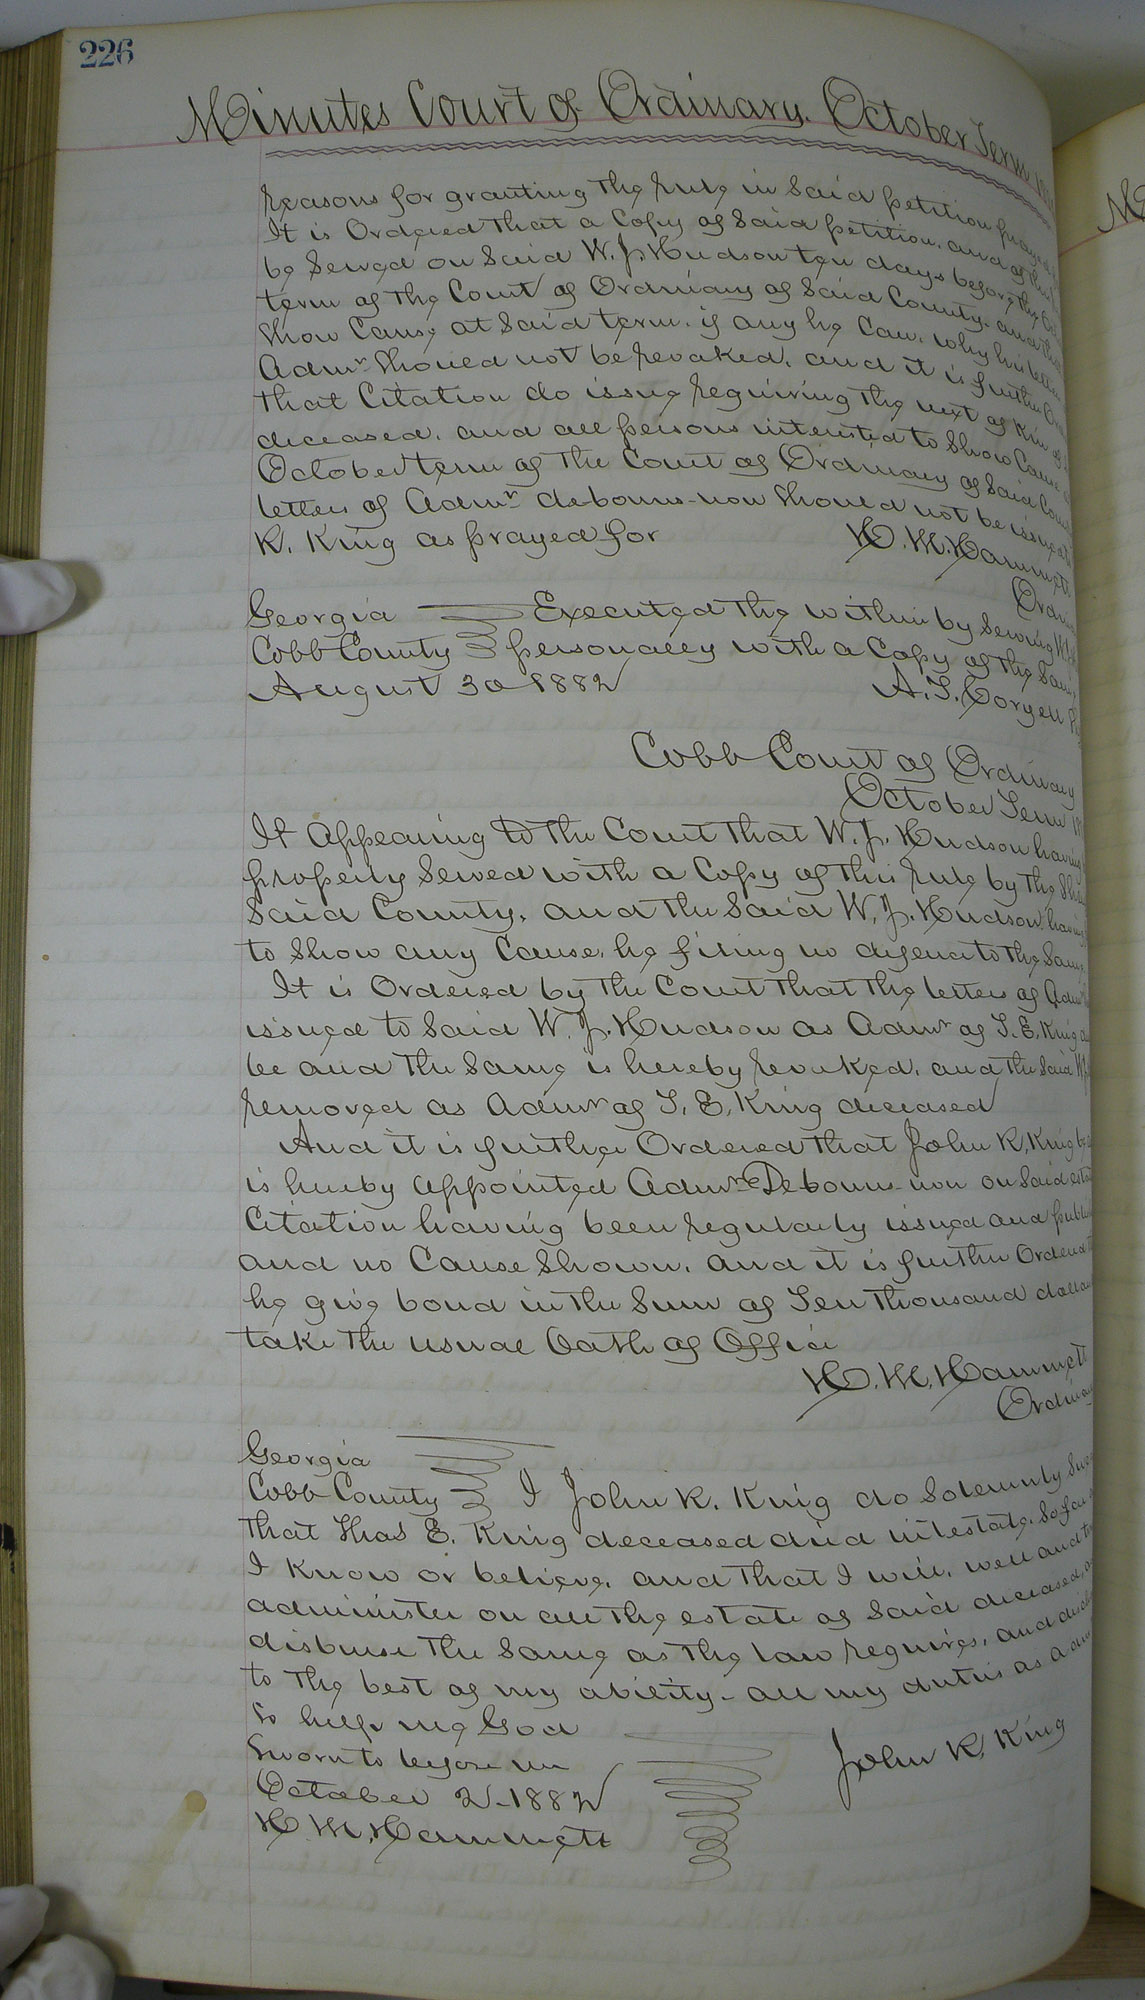 226
Minutes Court of Ordinary. October Term
reasons for granting the rule in Said petition prayed
It is Ordered that a Copy of Said petition. and of this
be Served on Said W. J. Hudson ten days before the Oct
term of the Court of Ordinary of Said County. and that
Show Cause at Said term. if any he can. why his letters
Admr Should not be revoked. and it is further Ord
that Citation do issue requiring the next of Kin of
deceased. and all persons interested to Show Cause
October term of the Court of Ordinary of Said Coun
letters of Admr. debonus-non Should not be issued
R. King as prayed for H. M. Hammett
Ordin
Georgia Executed the within by Serving W. J.
Cobb County personally with a Copy of the Same
August 30 1882 A. T. Coryell
Cobb Court of Ordinary
October Term 18
It Appearing to the Court that W. J. Hudson having
properly Served with a Copy of this rule by the Sh
Said County. and the Said W. J. Hudson having
to Show any Cause. he filing no defence to the Same
It is Ordered by the Court that the letters of Admr
issued to Said W. J. Hudson as Admr of T. E. King
be and the Same is hereby revoked. and the Said W.
removed as Admr of T. E. King deceased
And it is further Ordered that John R. King be
is hereby Appointed Admr Debonus-non on Said est
Citation having been regularly issued and publi
and no Cause Shown. and it is further Ordered
he give bond in the Sum of Ten thousand dollar
take the usual Oath of Office
H. M. Hammett
Ordinar
Georgia
Cobb County I John R. King do Solemnly Swe
that Thos E. King deceased died intestate. So far
I know or believe. and that I will. well and
administer on all the estate of Said deceased,
disburse the Same as the law requires. and disch
to the best of my ability- all my duties as
So help me God
Sworn to before me John R. King
October 2-1882
H. M. Hammett